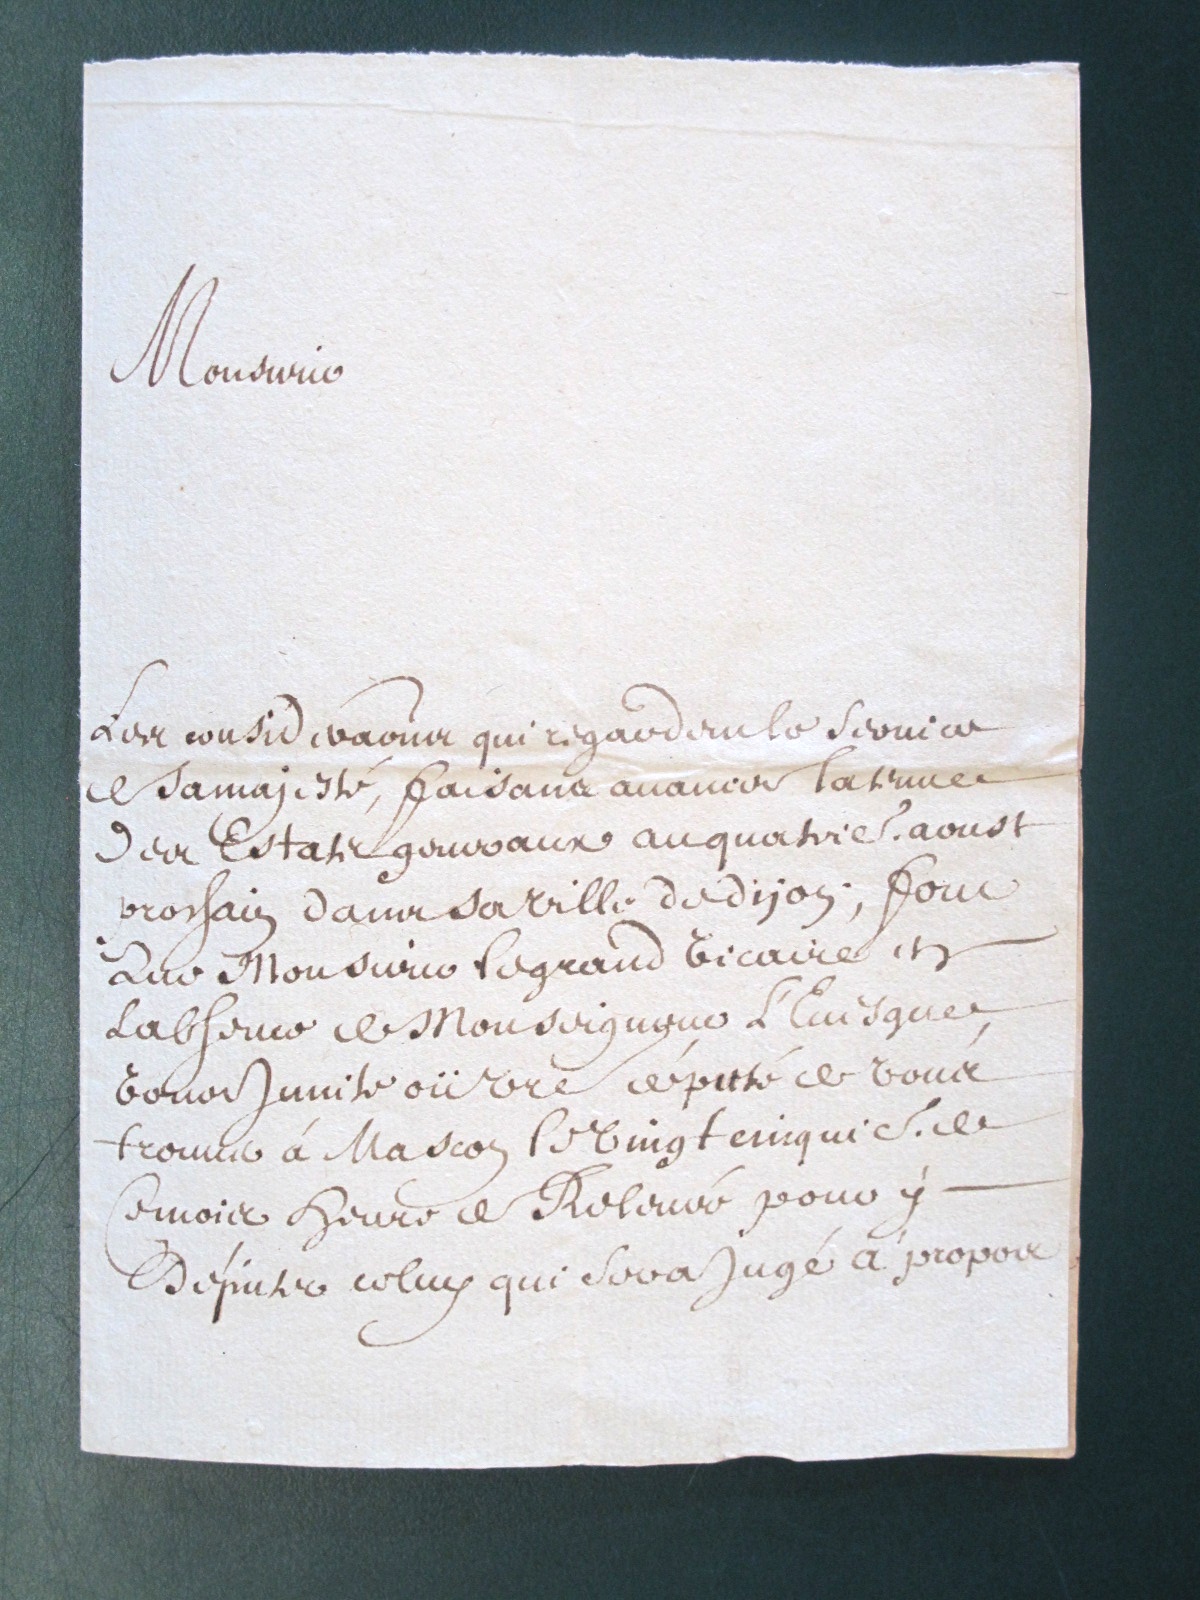 Monsieur
Les considéraõns qui regardent le service
de sa majesté, faisant auancer la tenue
des Estats generaux au quatrie.e aoust
prochain dans sa ville de dijon, font
Que Monsieur le grand vicaire en
Labsence de Monseigneur L'Euesque
vous Jnuite où vre député de vous
trouuer à Mascon le vingt cinquie.e de
ce mois heure de Releuée pour ÿ
Députer celuy qui sera Jugé à propos